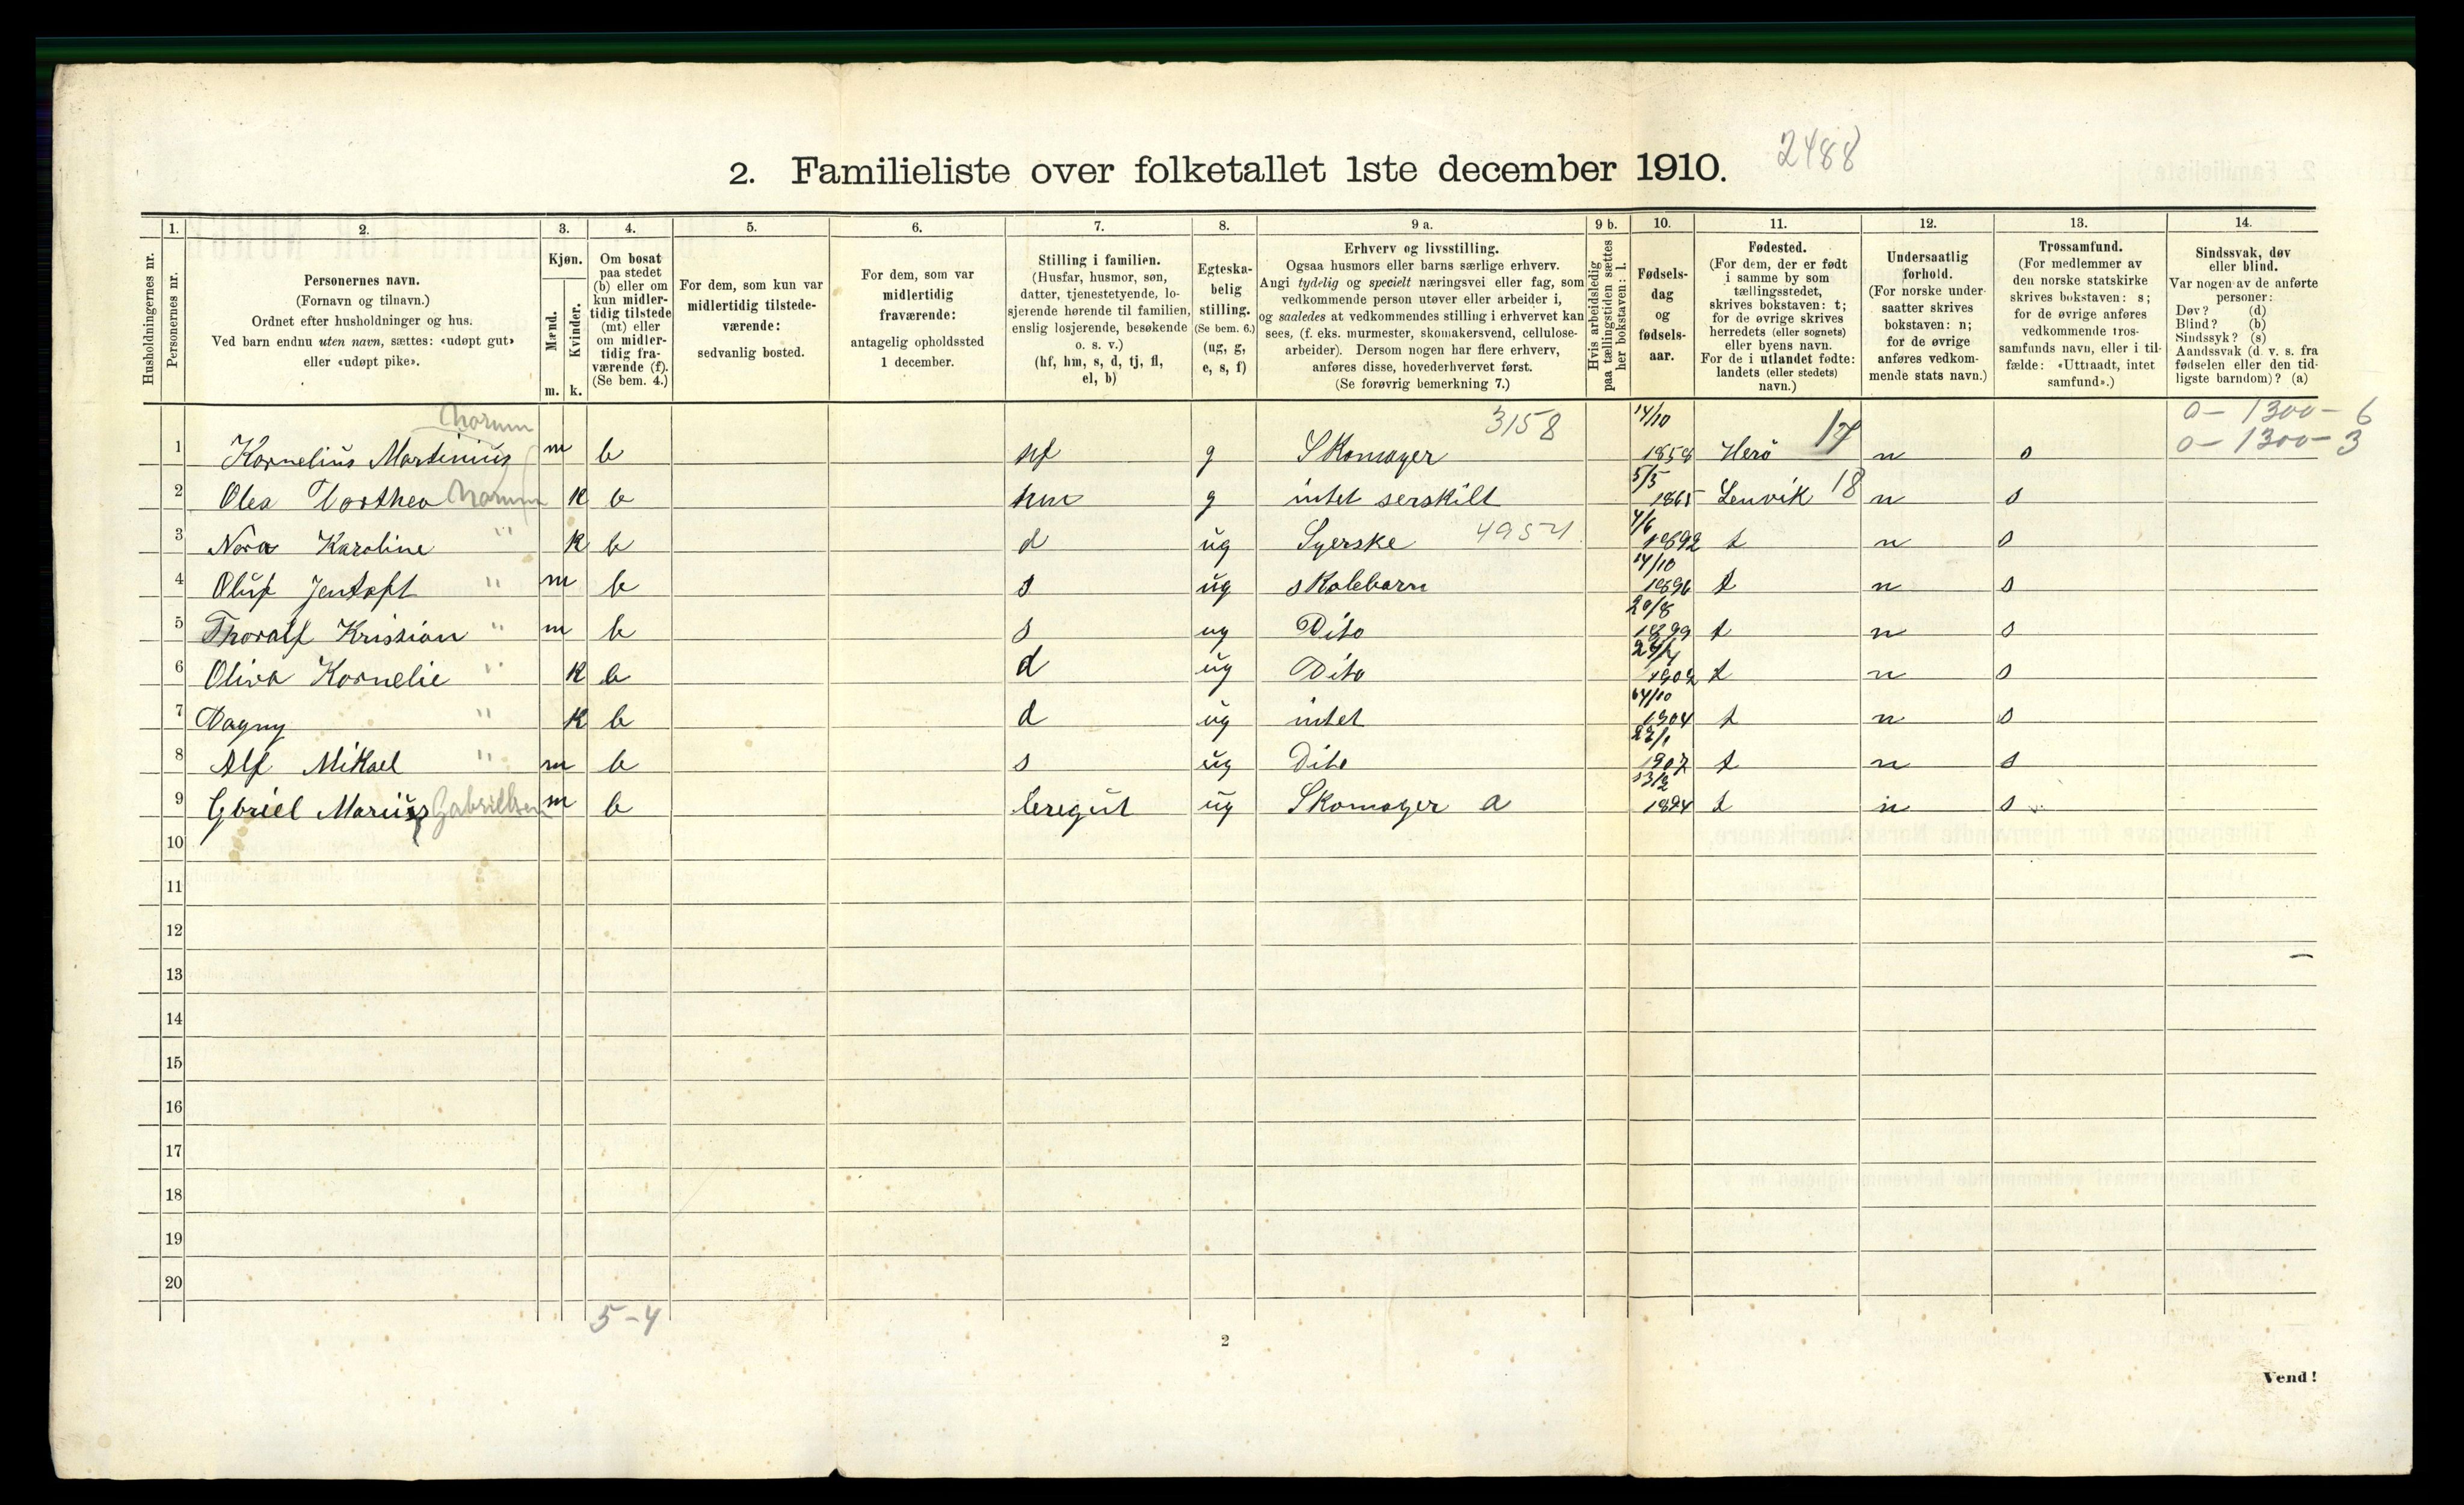 2. Familieliste over folketallet 1ste december 1910. 2488
Husholdningernes nr.
1. Personernes nr.
2. Personernes navn.
(Fornavn og tilnavn.)
Ordnet efter husholdninger og hus.
Ved barn endnu uten navn, sættes: «udøpt gut»
eller «udøpt pike».
3. Kjøn.
Mænd. Kvinder.
m. k.
4. Om bosat
paa stedet
(b) eller om
kun midler-
tidig tilstede
(mt) eller
om midler-
tidig fra-
værende (f).
(Se bem. 4.)
5. For dem, som kun var
midlertidig tilstede-
værende:
sedvanlig bosted.
6. For dem, som var
midlertidig
fraværende:
antagelig opholdssted
1 december.
7. Stilling i familien.
(Husfar, husmor, søn,
datter, tjenestetyende, lo-
sjerende hørende til familien,
enslig losjerende, besøkende
o. s. v.)
(hf, hm, s, d, tj, fl,
el, b)
8. Egteska-
belig
stilling.
(Se bem. 6.)
(ug, g,
e, s, f)
9 a. Erhverv og livsstilling.
Ogsaa husmors eller barns særlige erhverv.
Angi tydelig og specielt næringsvei eller fag, som
vedkommende person utøver eller arbeider i,
og saaledes at vedkommendes stilling i erhvervet kan
sees, (f. eks. murmester, skomakersvend, cellulose-
arbeider). Dersom nogen har flere erhverv,
anføres disse, hovederhvervet først.
(Se forøvrig bemerkning 7.)
9 b. Hvis arbeidsledig
paa tællingstiden sættes
her bokstaven: l.
10. Fødsels-
dag
og
fødsels-
aar.
11. Fødested.
(For dem, der er født
i samme by som
tællingsstedet,
skrives bokstaven: t;
for de øvrige skrives
herredets (eller sognets)
eller byens navn.
For de i utlandet fødte:
landets (eller stedets)
navn.)
12. Undersaatlig
forhold.
(For norske under-
saatter skrives
bokstaven: n;
for de øvrige
anføres vedkom-
mende stats navn.)
13. Trossamfund.
(For medlemmer av
den norske statskirke
skrives bokstaven: s;
for de øvrige anføres
vedkommende tros-
samfunds navn, eller i til-
fælde: «Uttraadt, intet
samfund».)
14. Sindssvak, døv
eller blind.
Var nogen av de anførte
personer:
Døv? (d)
Blind? (b)
Sindssyk? (s)
Aandssvak (d. v. s. fra
fødselen eller den tid-
ligste barndom)? (a)
Norum 3158 14/10 0 - 1300 - 6
1 Kornelius Martinius m b hf g Skomager 1858 Herö 17 n s 0 - 1300 - 3
2 Olea Dorthea Norum k b hm g intet serskilt 5/5 1865 Lenvik 18 n s
3 Nora Karoline " k b d ug Syerske 4954 4/6 1892 t n s
4 Oluf Jentoft " m b s ug skolebarn 14/10 1896 t n s
5 Thoralf Kristian " m b s ug Dito 20/8 1899 t n s
6 Oliva Kornelie " k b d ug Dito 1902 t n s
7 Dagny " k b d ug intet 1904 t n s
8 Alf Mikael " m b s ug Dito 1907 t n s
9 Gbriel Marius Gabrielsen m b leregut ug Skomager a 1894 t n s
10
11
12
13
14
15
16
17
18
19
20
5 - 4
2
Vend!